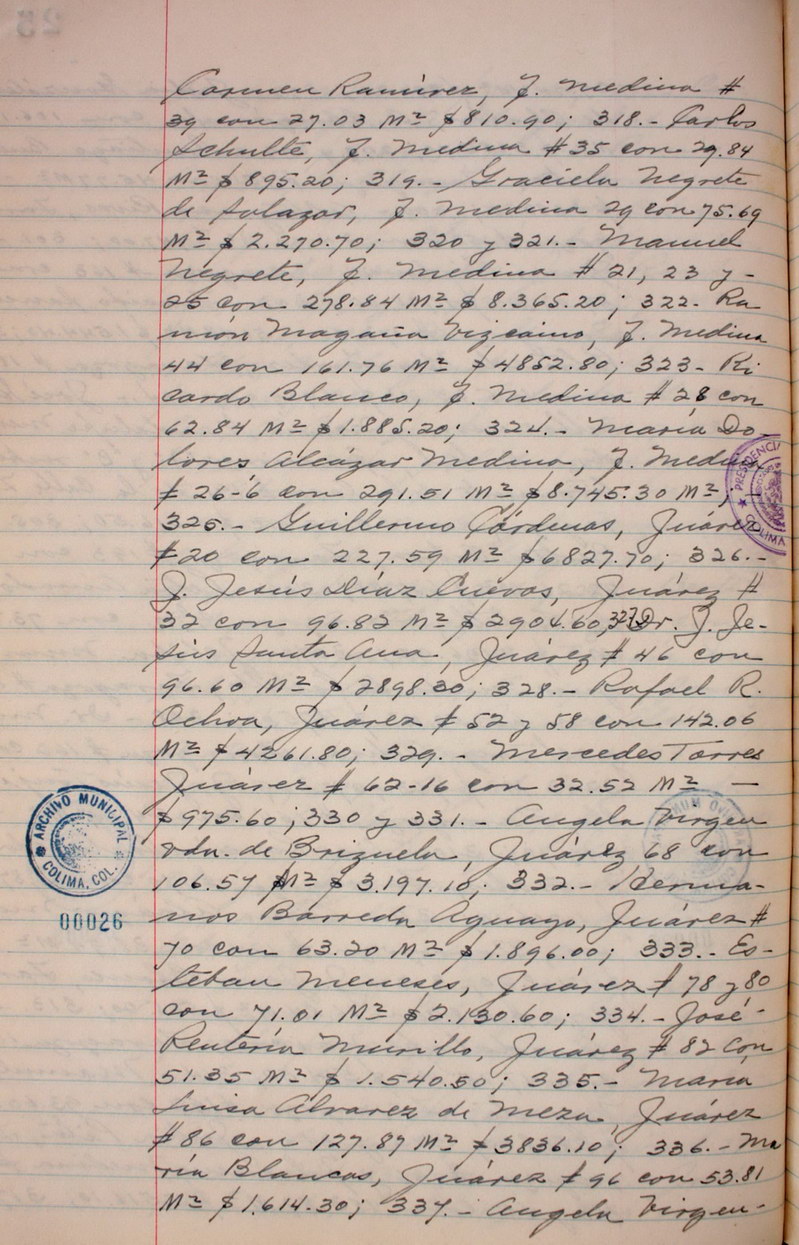 Carmen Ramírez, F. Medina #
39 con 27.03 M² $810.90; 318.- Carlos
Schulte, F. Medina #35 con 29.84
M² $895.20; 319.- Graciela Negrete
de Salazar, F. Medina 29 con 75.69
M² $2.270.70; 320 y 321.- Manuel
Negrete, F. Medina #21, 23 y -
25 con 278.84 M² $8.365.20; 322- Ra
món Magaña Vizcaino, F. Medina
44 con 161.76 M² $4852.80; 323- Ri
cardo Blanco, F. Medina #28 con
62.84 M² $1.885.20; 324.- María Do-
lores Alcázar Medina, F. Medina
# 26-6 con 291.51 M² $8.745.30 M²; -
325.- Guillermo Cárdenas, Juárez
#20 con 227.59 M² $6827.70; 326.-
J. Jesús Díaz Cuevas, Juárez #
32 con 96.82 M² $2904.60; 327 Dr. J. Je-
sús Santa Ana, Juárez # 46 con
96.60 M² $2898.30; 328.- Rafael R.
Ochoa, Juárez # 52 y 58 con 142.06
M² $4261.80; 329.- Mercedes Torres
Juárez # 62-16 con 32.52 M² -
$975.60; 330 y 331.- Angela Virgen
vda. de Brizuela, Juárez 68 con
106.57 M² $3.197.10; 332.- Herma-
nos Barreda Aguayo, Juárez #
70 con 63.20 M² $1.896.00; 333.- Es-
teban Meneses, Juárez # 78 y 80
con 71.01 M² $2.130.60; 334.- José-
Rentería Murillo, Juárez # 82 con
51.35 M² $1.540.50; 335.- María
Luisa Alvarez de Meza, Juárez
#86 con 127.87 M² $3836.10; 336.- Ma
ría Blancas, Juárez # 96 con 53.81
M² $1.614.30; 337.- Angela Virgen-
PRESIDENCIA
COLIMA
ARCHIVO MUNICIPAL
COLIMA, COL.
00026